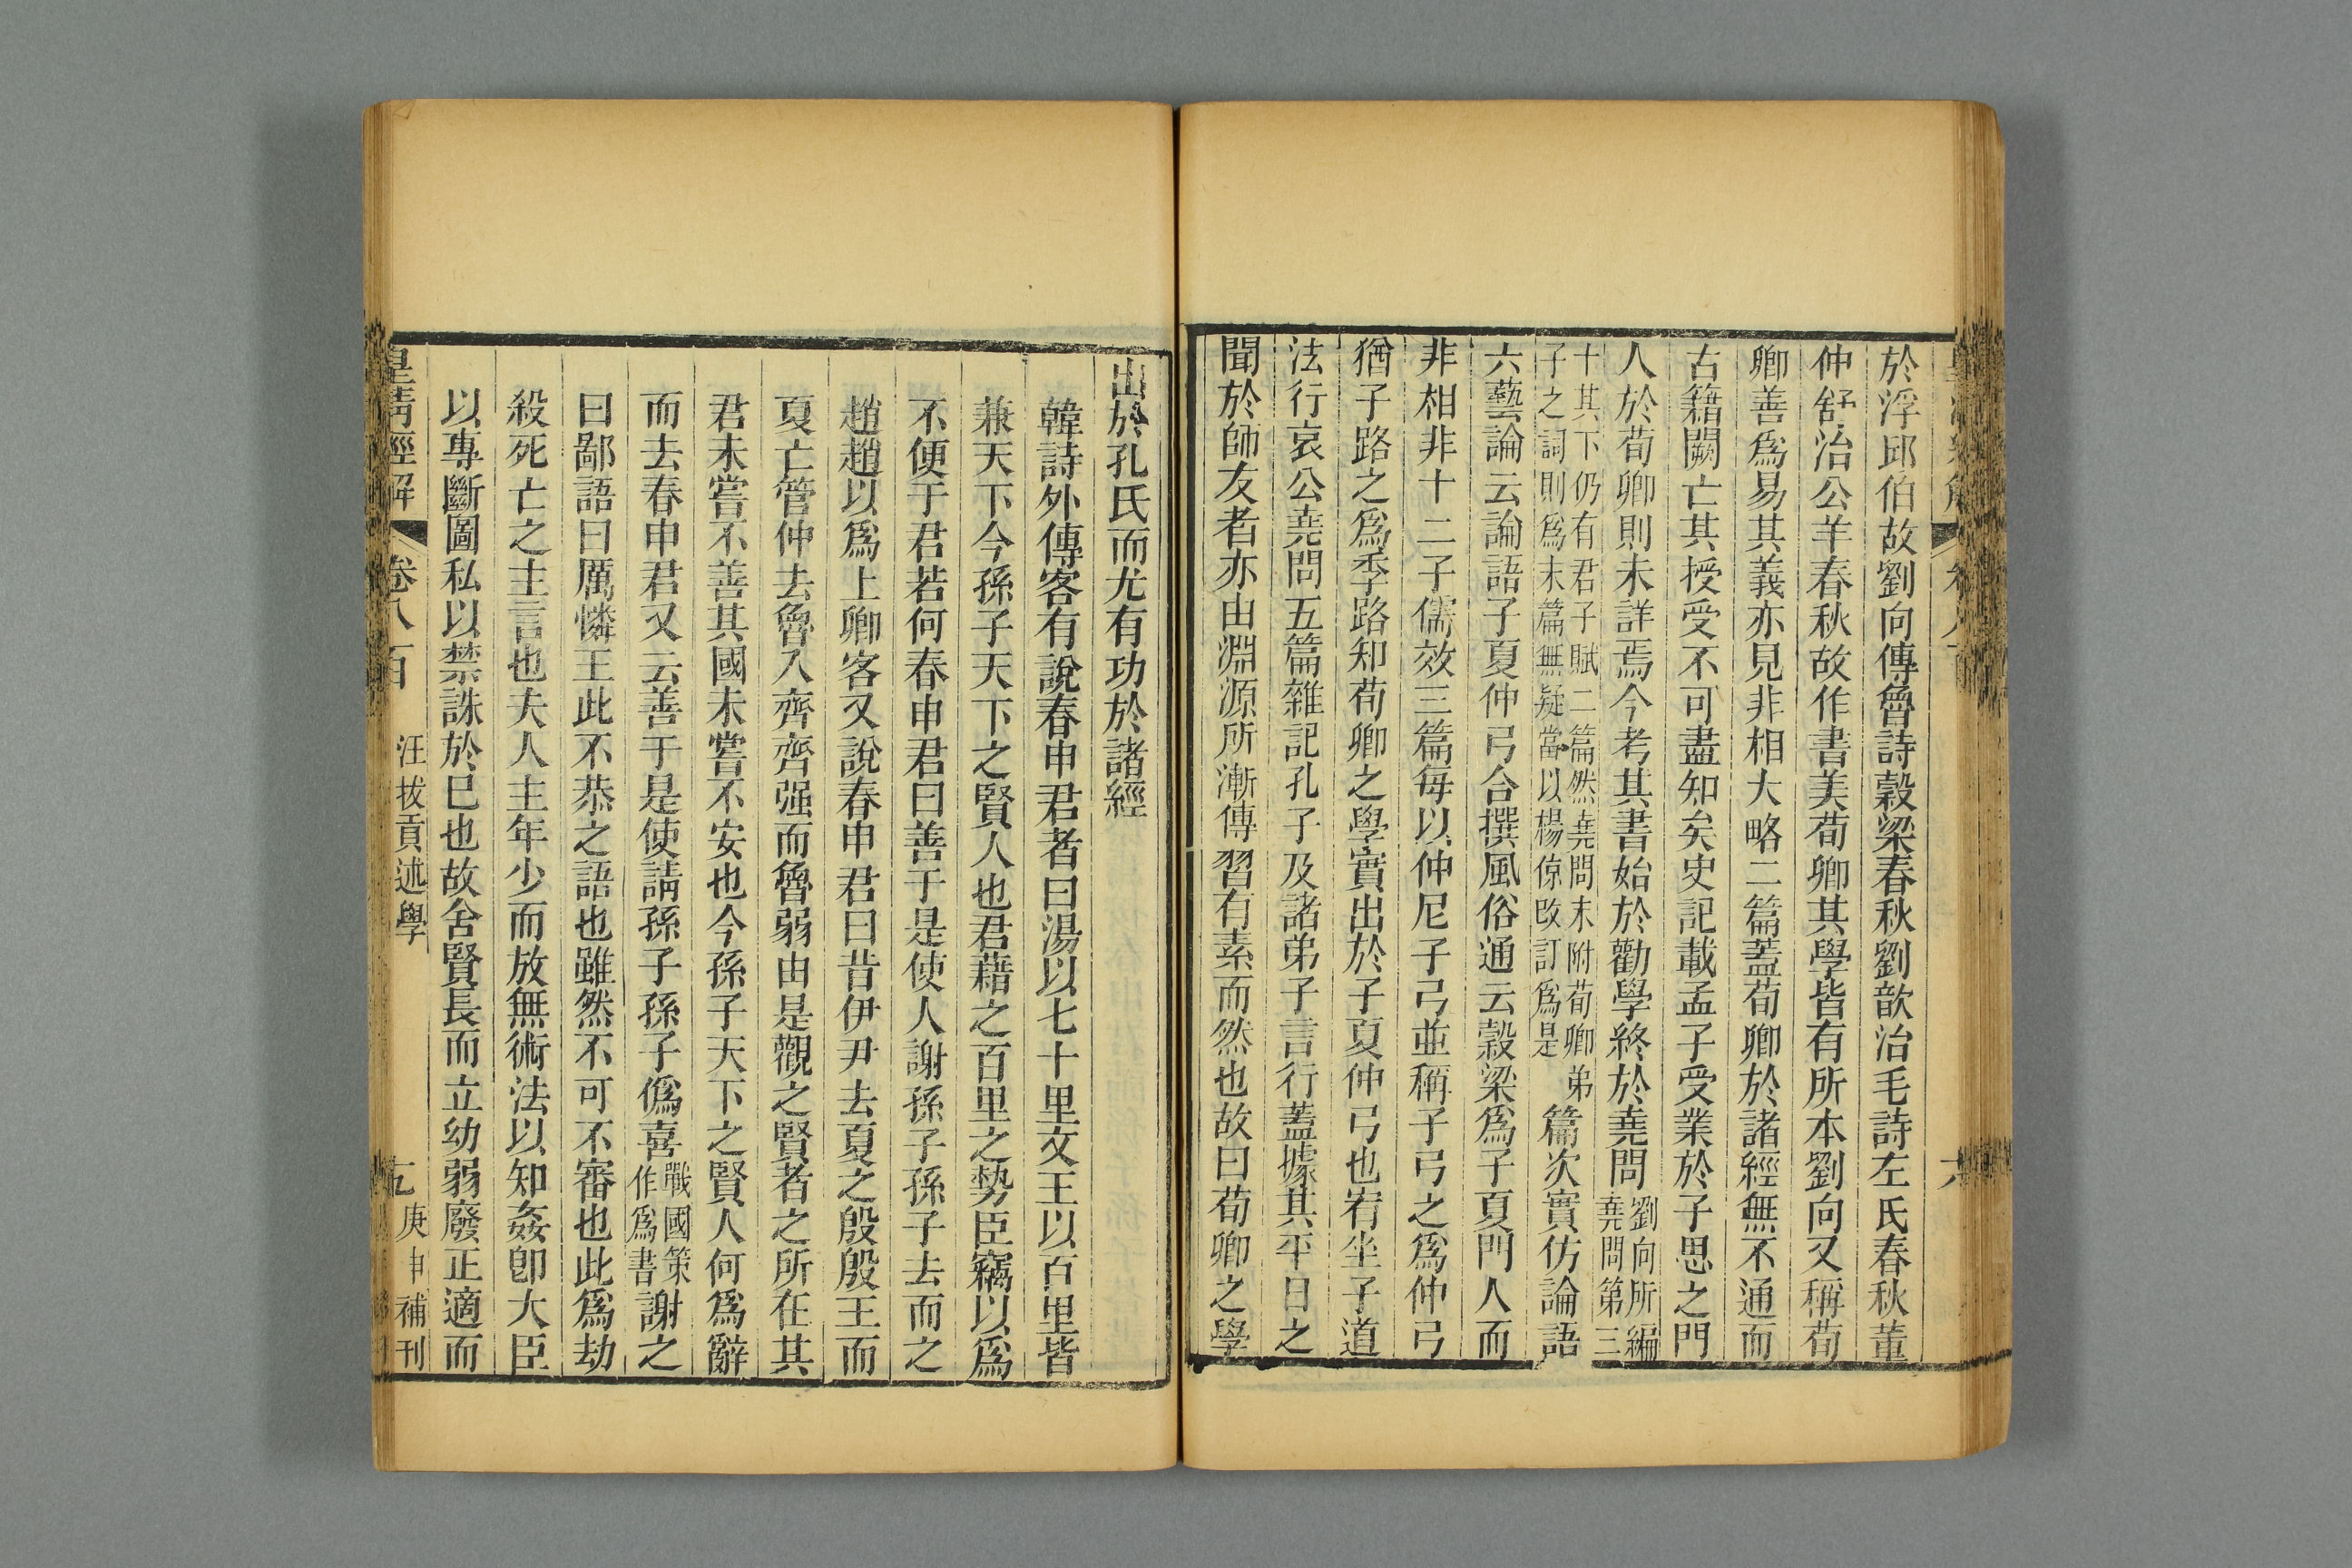 於浮邱伯故劉向傳魯詩穀梁春秋劉歆治毛詩左氏春秋董
仲舒治公羊春秋故作書美荀卿其學皆有所本劉向又稱荀
卿善爲易其義亦見非相大略二篇蓋荀卿於諸經無不通而
古籍闕亡其授受不可盡知矣史記載孟子受業於子思之門
人於荀卿則未詳焉今考其書始於勸學終於堯問劉向所編堯問第三
十其下仍有君子賦二篇然堯問末附荀卿弟子之詞則爲末篇無疑當以楊倞改訂爲是篇次實仿論語
六藝論云論語子夏仲弓合撰風俗通云穀梁爲子夏門人而
非相非十二子儒效三篇每以仲尼子弓並稱子弓之爲仲弓
猶子路之爲季路知荀卿之學實出於子夏仲弓也宥坐子道
法行哀公堯問五篇雜記孔子及諸弟子言行蓋據其平日之
聞於師友者亦由淵源所漸傳習有素而然也故曰荀卿之學
出於孔氏而尤有功於諸經
韓詩外傳客有說春申君者曰湯以七十里文王以百里皆
兼天下今孫子天下之賢人也君藉之百里之勢臣竊以爲
不便于君若何春申君曰善于是使人謝孫子孫子去而之
趙趙以爲上卿客又說春申君曰昔伊尹去夏之殷殷王而
夏亡管仲去魯入齊齊强而魯弱由是觀之賢者之所在其
君未嘗不善其國未嘗不安也今孫子天下之賢人何爲辭
而去春申君又云善于是使請孫子孫子僞喜戰國策作爲書謝之
曰鄙語曰厲憐王此不恭之語也雖然不可不審也此爲劫
殺死亡之主言也夫人主年少而放無術法以知姦卽大臣
以專斷圖私以禁誅於已也故舍賢長而立幼弱廢正適而
皇淸經解 卷八百 汪拔貢述學 七 庚申補刊